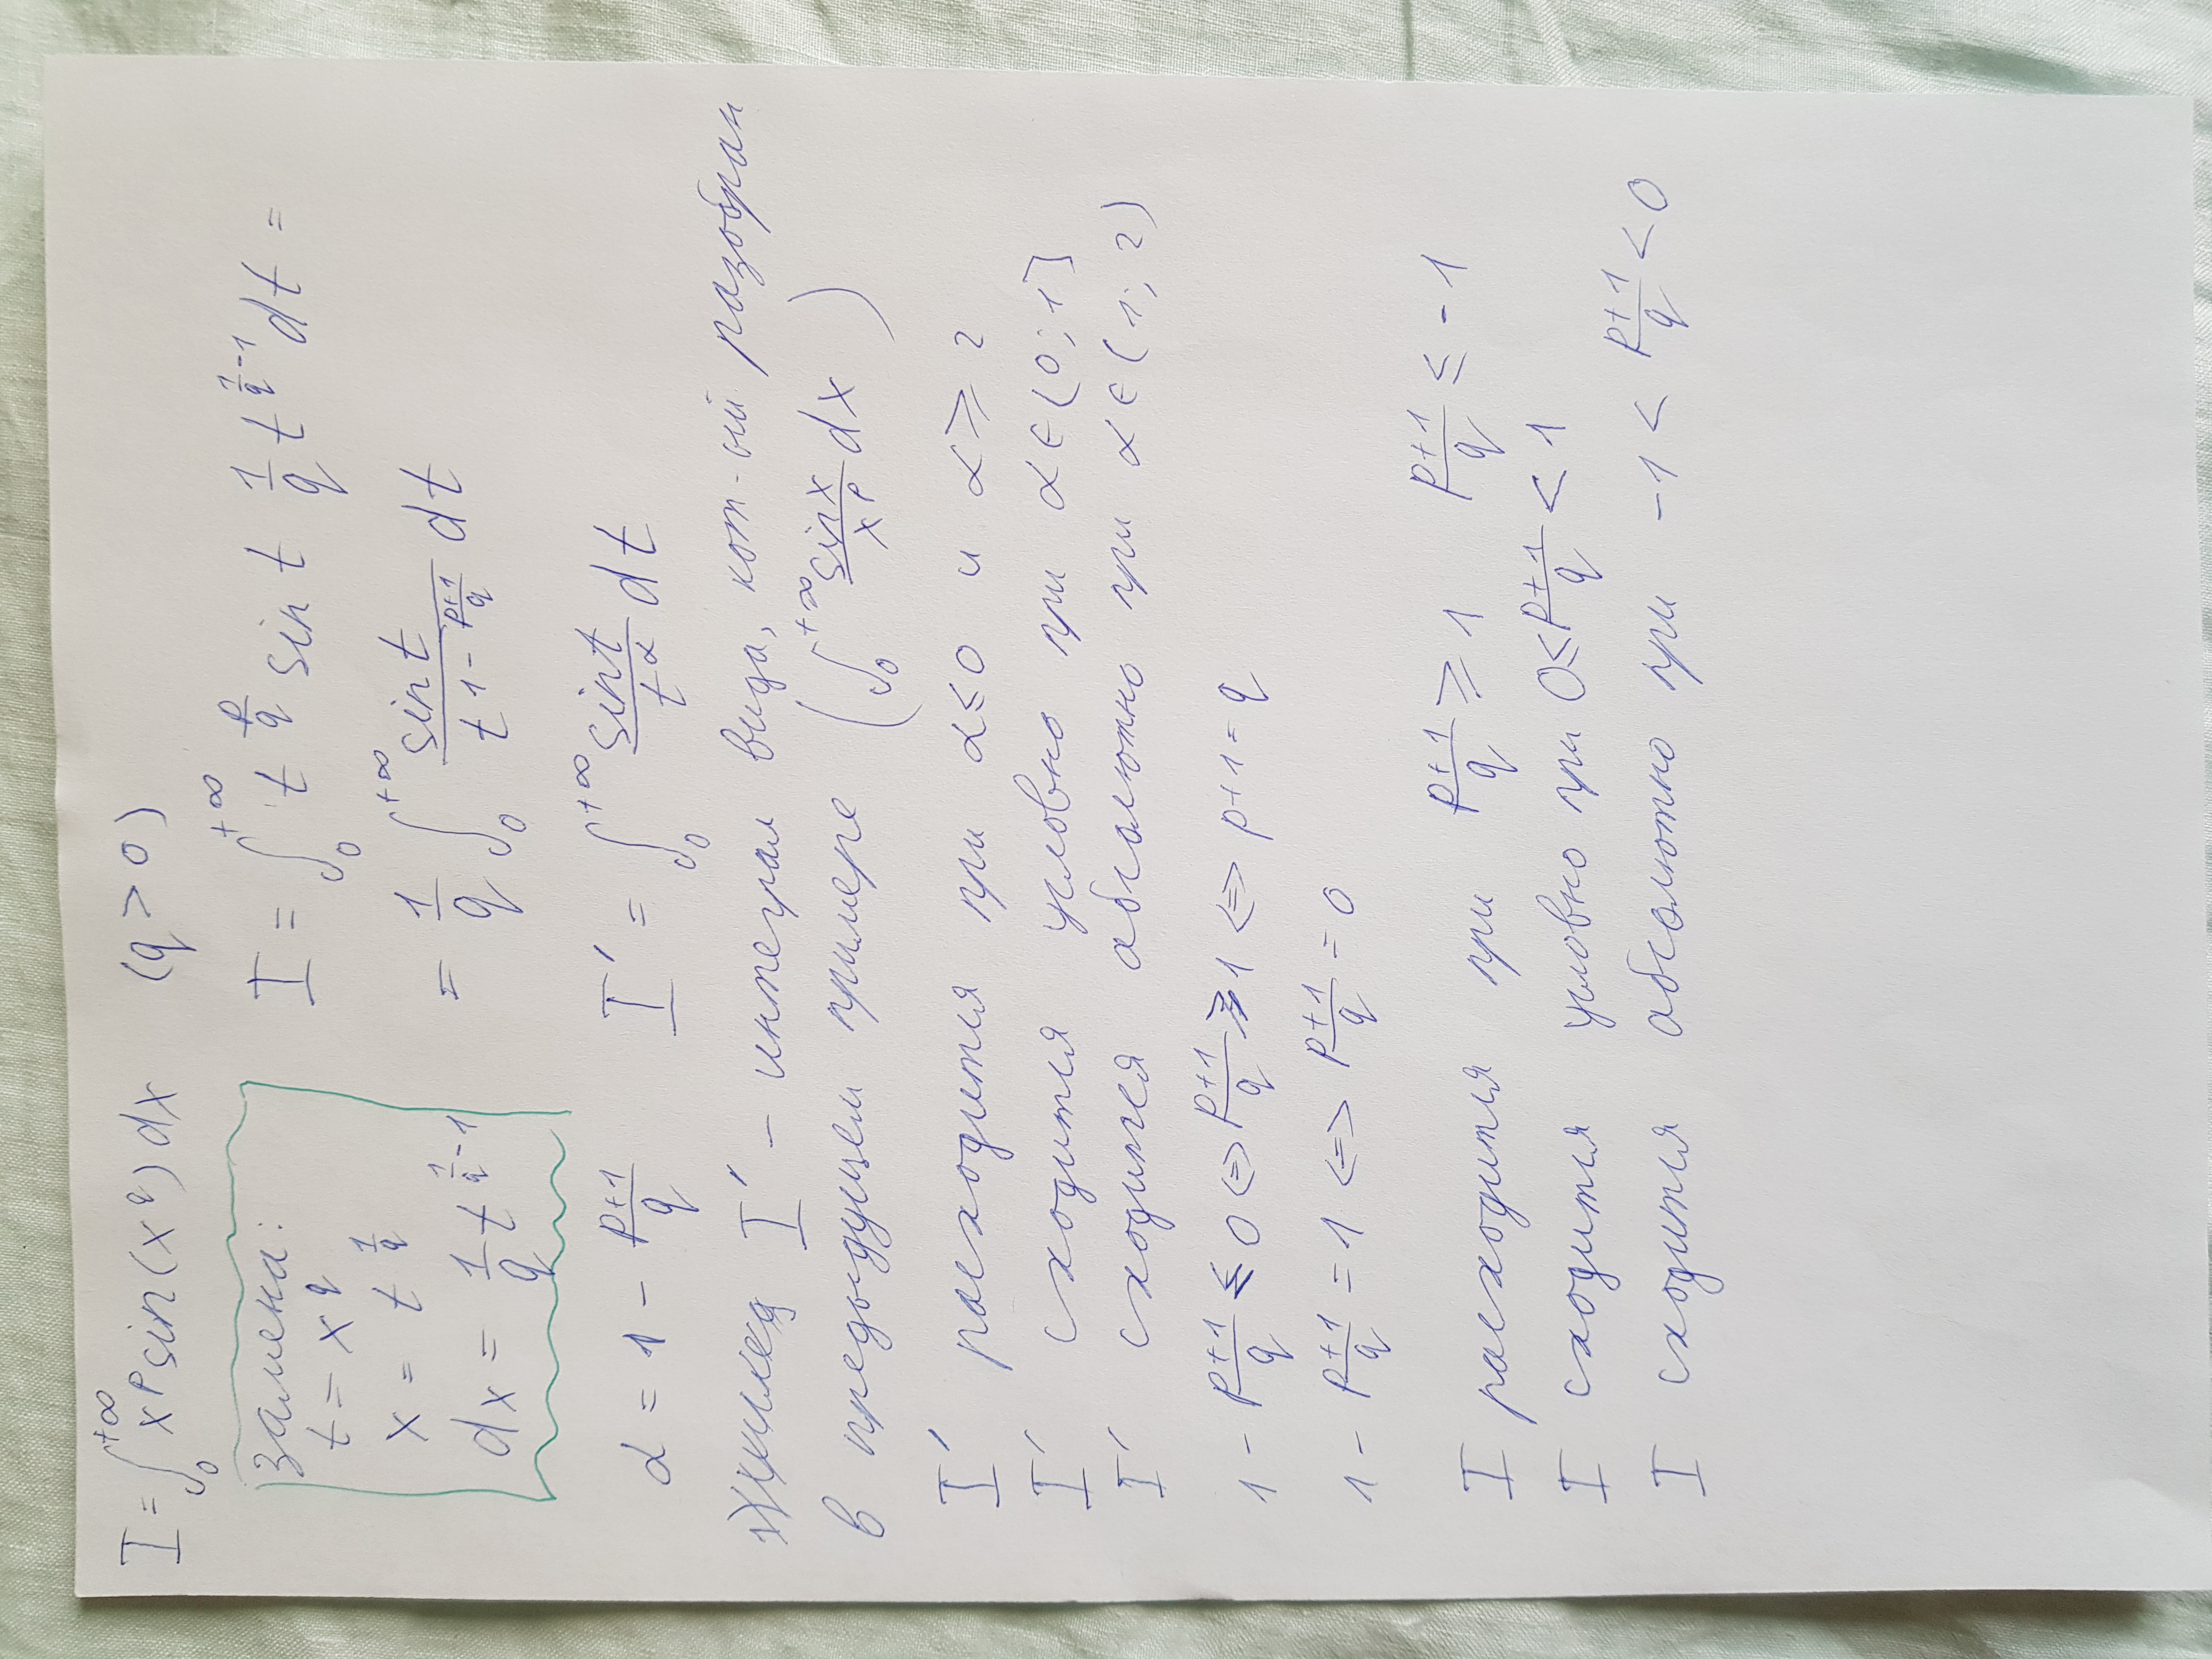 I = ∫₀^{+∞} x^p sin(x^q) dx (q > 0)
замена:
t = x^q
x = t^{1/q}
dx = 1/q t^{1/q - 1}
I = ∫₀^{+∞} t^{p/q} sin t 1/q t^{1/q - 1} dt =
= 1/q ∫₀^{+∞} sin t / t^{1 - (p+1)/q} dt
α = 1 - (p+1)/q I' = ∫₀^{+∞} sin t / t^α dt
I' - интеграл вида, кот-ый разобран
в предыдущем примере (∫₀^{+∞} sin x / x^p dx)
I' расходится при α ≤ 0 и α ⩾ 2
I' сходится условно при α ∈ (0; 1]
I' сходится абсолютно при α ∈ (1; 2)
1 - (p+1)/q ≤ 0 <=> (p+1)/q ⩾ 1 <=> p+1 = q
1 - (p+1)/q = 1 <=> (p+1)/q = 0
I расходится при (p+1)/q ⩾ 1 (p+1)/q ≤ -1
I сходится условно при 0 ≤ (p+1)/q < 1
I сходится абсолютно при -1 < (p+1)/q < 0